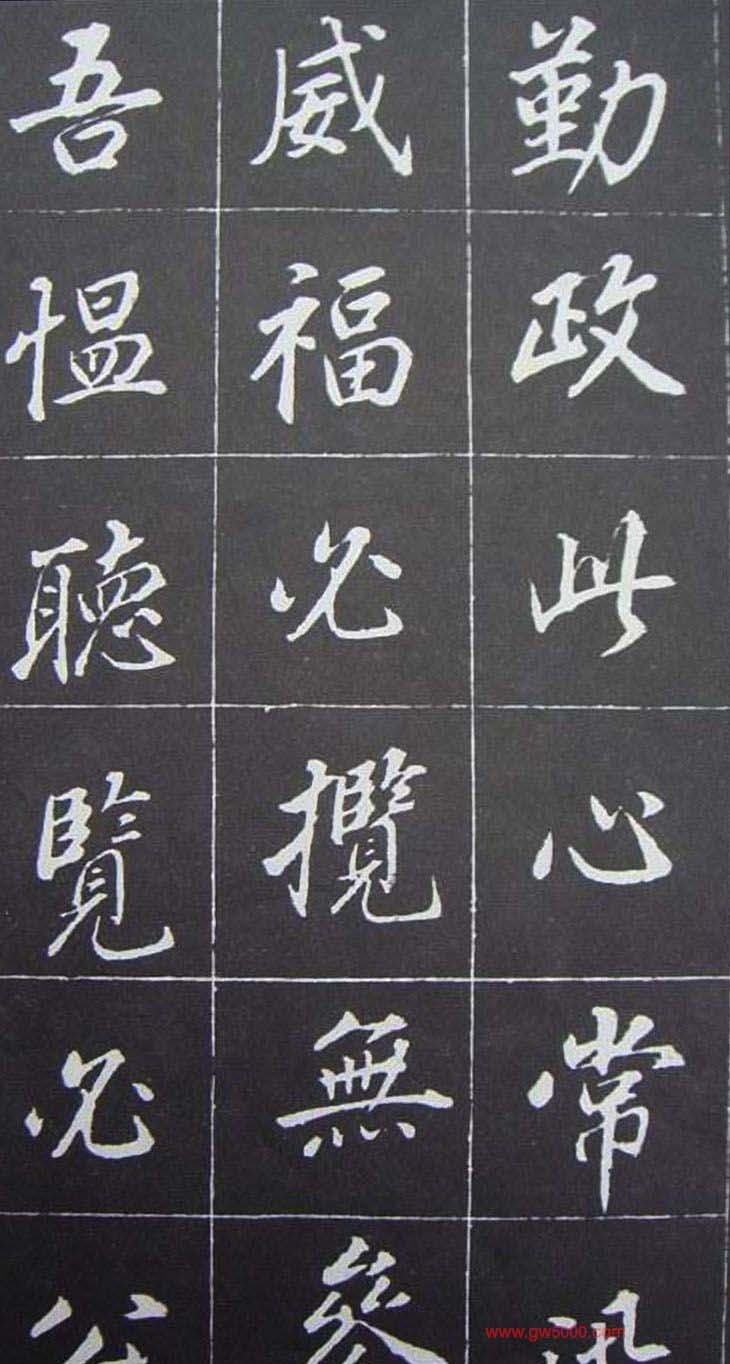 勤政此心常
威福必攬無參
吾愠聽覽必公
www.gw5000.com